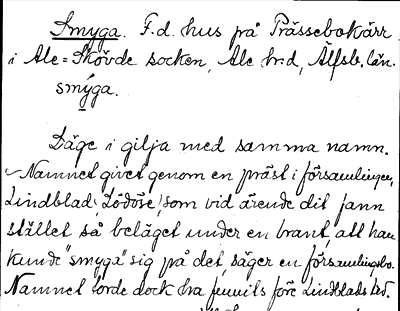 Smyga. F.d. hus på Prässebokärr
i Ale-Skövde socken, Ale hd, Älfsb. län.
smýga.
Läge i gilja med samma namn.
Namnet givet genom en präst i församlingen,
Lindblad i Lödöse, som vid ärende dit fann
stället så beläget under en brant, att han
kunde "smyga" sig på det, säger en församlingsbo.
Namnet torde dock ha funnits före Lindblads tid.